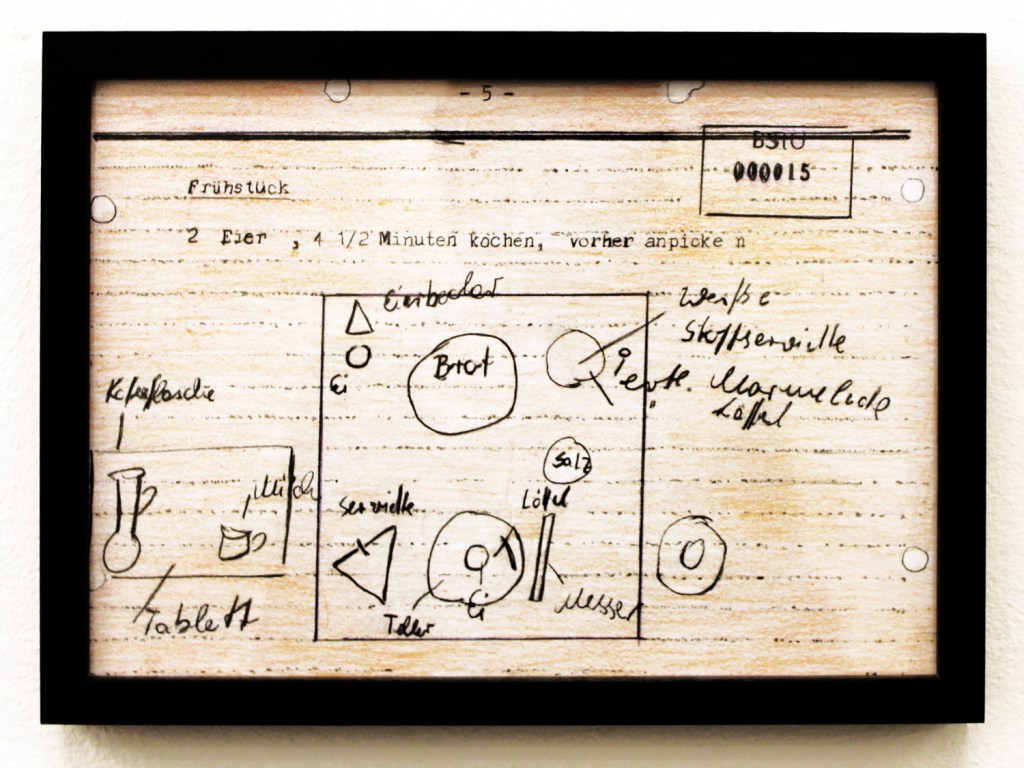 - 5 -
BStU
000015
Frühstück
2 Eier , 4 1/2 Minuten kochen, vorher anpicke n
Eierbecher
Weiße
Stoffserviette
Ei
Brot
evtl. Marmelade
Löffel
Kaffeflasche
Salz
Milch
Serviette
Löffel
Tablett
Teller
Ei
Messer